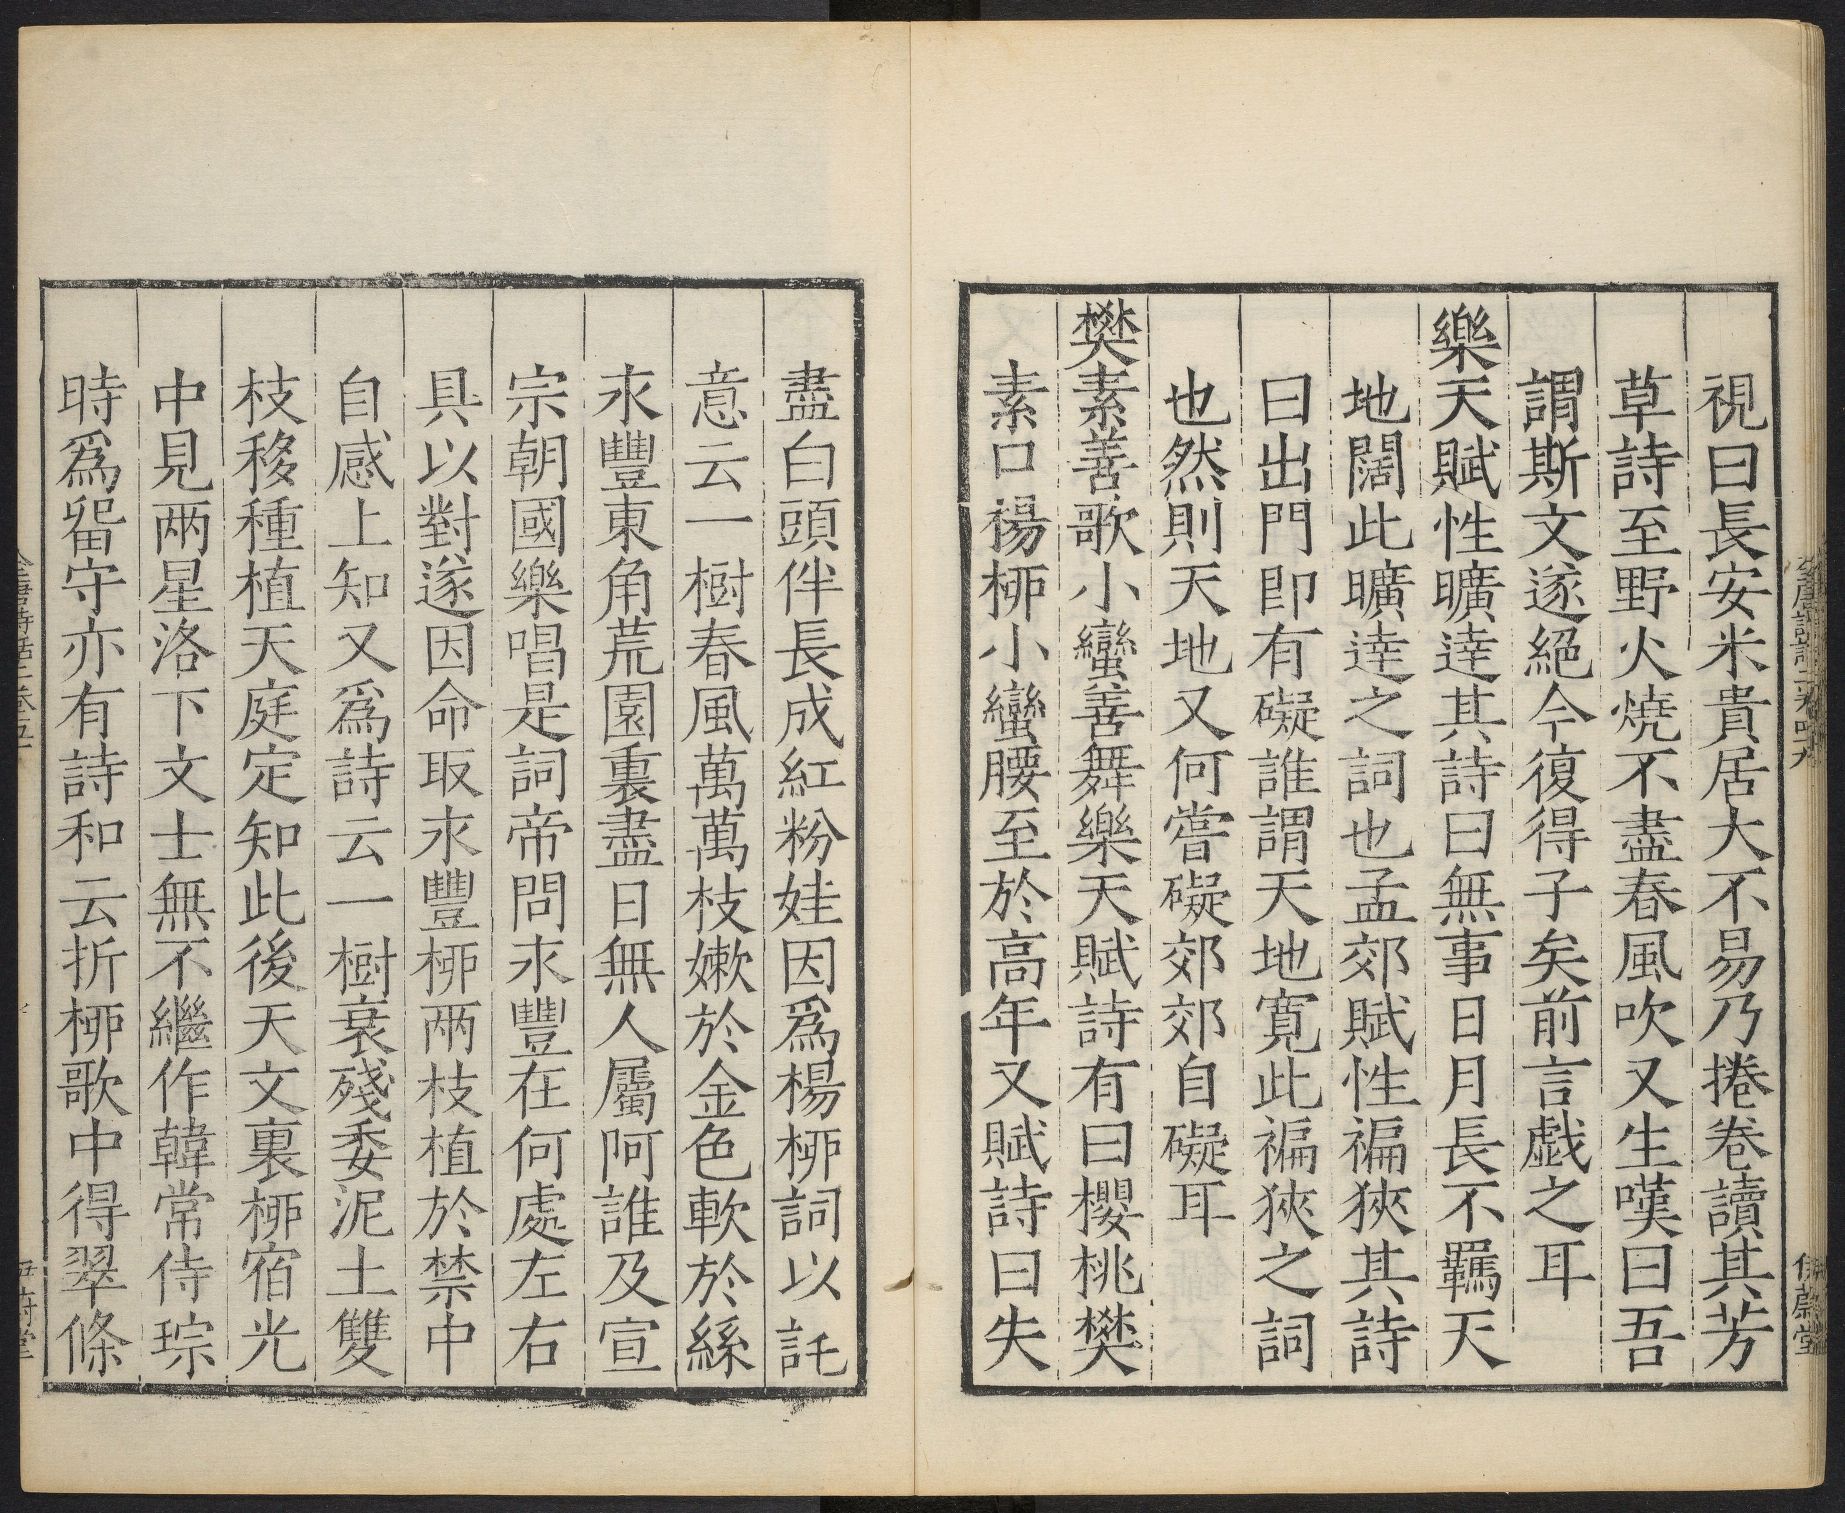 視曰長安米貴居大不易乃捲卷讀其芳
草詩至野火燒不盡春風吹又生嘆曰吾
謂斯文遂絕今復得子矣前言戲之耳
樂天賦性曠達其詩曰無事日月長不羈天
地闊此曠達之詞也孟郊賦性褊狹其詩
曰出門即有礙誰謂天地寬此褊狹之詞
也然則天地又何嘗礙郊郊自礙耳
樊素善歌小蠻善舞樂天賦詩有曰櫻桃樊
素口楊柳小蠻腰至於高年又賦詩曰失
盡白頭伴長成紅粉娃因爲楊柳詞以託
意云一樹春風萬萬枝嫩於金色軟於絲
永豐東角荒園裏盡日無人屬阿誰及宣
宗朝國樂唱是詞帝問永豐在何處左右
具以對遂因命取永豐柳兩枝植於禁中
自感上知又爲詩云一樹衰殘委泥土雙
枝移種植天庭定知此後天文裏柳宿光
中見兩星洛下文士無不繼作韓常侍琮
時爲留守亦有詩和云折柳歌中得翠條